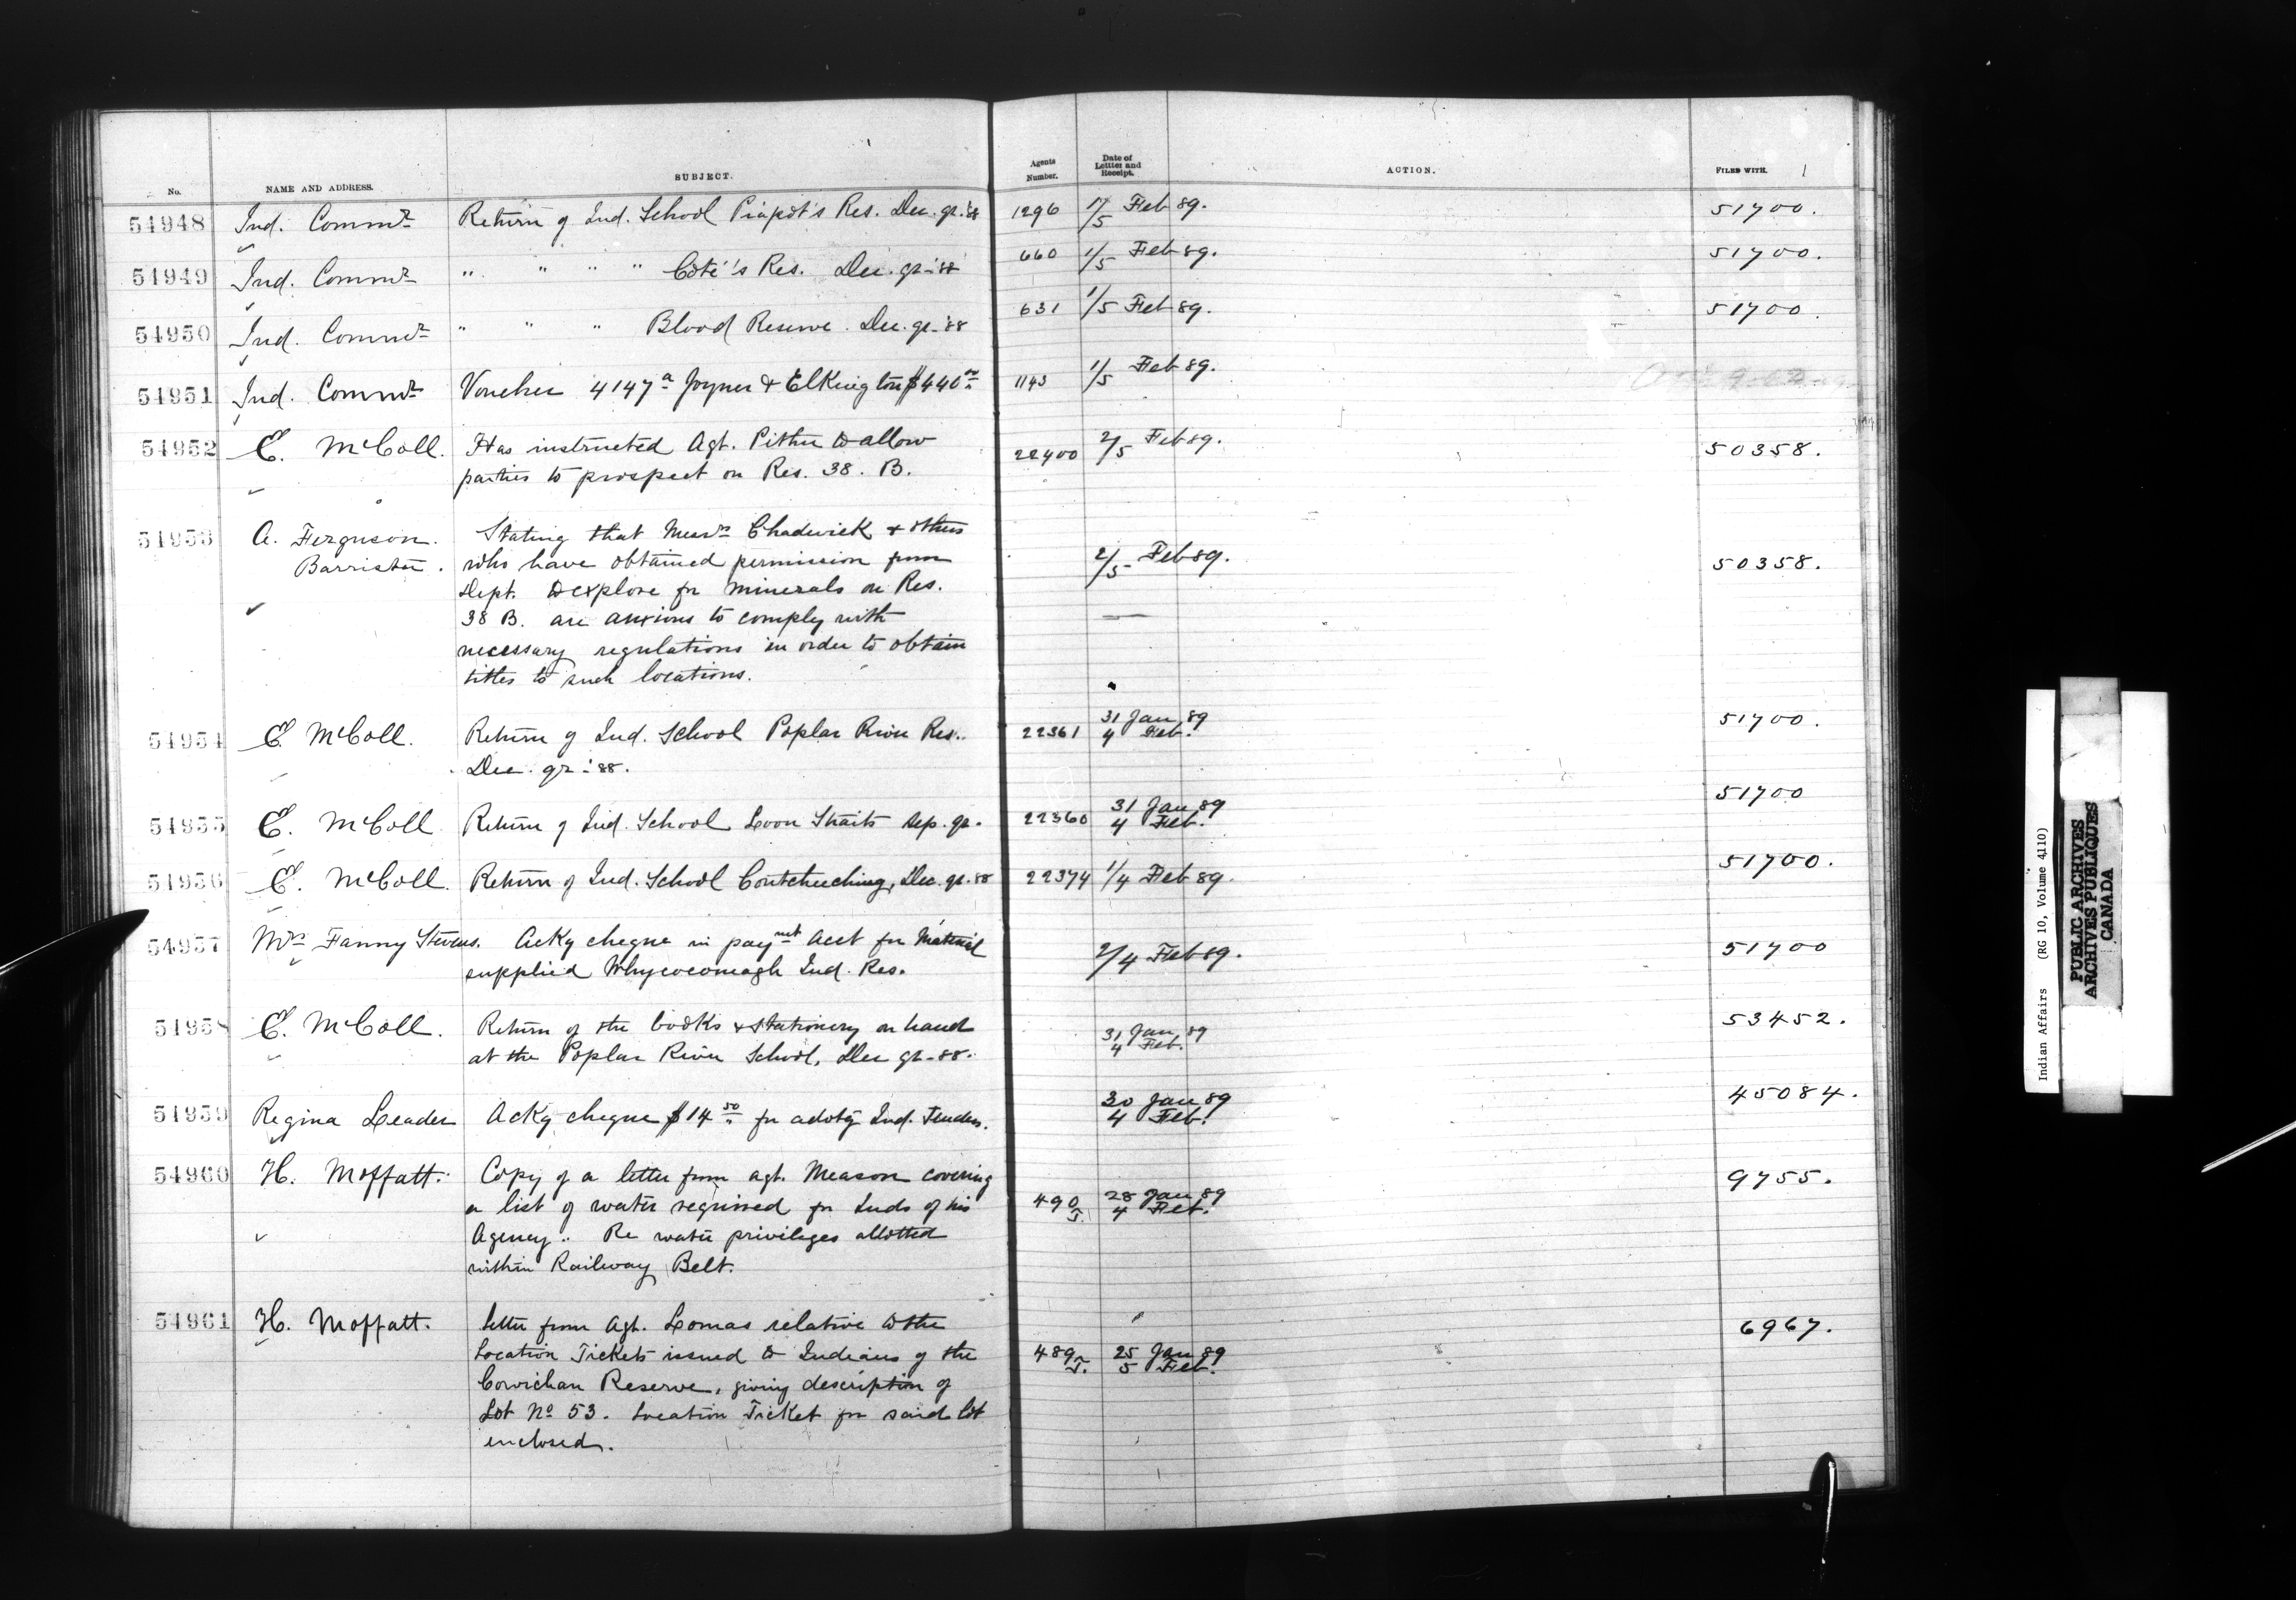 No. NAME AND ADDRESS. SUBJECT. Agents Number. Date of Letter and Receipt. ACTION. FILED WITH.
54948 Ind. Commr Return of Ind. School Piapot's Res. Dec. qr. '88 1296 1/5 Feb 89. 51700.
54949 Ind. Commr " " " " Coté's Res. Dec. qr - '88 660 1/5 Feb 89. 51700.
54950 Ind. Commr " " " Blood Reserve. Dec. qr - '88 631 1/5 Feb 89. 51700.
54951 Ind. Commr Voucher 4147a Joyner & Elkington $440 1143 1/5 Feb 89.
54952 E. McColl. Has instructed Agt. Pither to allow 22400 2/5 Feb 89. 50358.
parties to prospect on Res. 38. B.
54953 A. Ferguson. Stating that Messrs Chadwick & others
Barrister. who have obtained permission from 2/5 Feb 89. 50358.
Dept. to explore for minerals on Res.
38 B. are anxious to comply with
necessary regulations in order to obtain
titles to such locations.
54954 E. McColl. Return of Ind. School Poplar River Res. 22361 31 Jan 89 4 Feb. 51700.
Dec. qr - '88.
54955 E. McColl Return of Ind. School Loon Straits Sep. qr. 22360 31 Jan 89 4 Feb. 51700
54956 E. McColl. Return of Ind. School Coutcheeching, Dec. qr. 88 22374 1/4 Feb 89. 51700.
54957 Mrs Fanny Stevens. Ackg cheque in paymt acct for Material 2/4 Feb 89. 51700
supplied Whycocomagh Ind. Res.
54958 E. McColl. Return of the books & stationery on hand 31 Jan 89 4 Feb. 53452.
at the Poplar River School, Dec qr - 88.
54959 Regina Leader Ackg cheque $14 50 for advtg Ind. Tenders. 30 Jan 89 4 Feb. 45084.
54960 H. Moffatt. Copy of a letter from agt. Meason covering 9755.
a list of water required for Inds of his 490 J. 28 Jan 89 4 Feb.
Agency.. Re water privileges allotted
within Railway Belt.
54961 H. Moffatt. letter from Agt. Lomas relative to the 6967.
Location Tickets issued to Indians of the 489 J. 25 Jan 89 5 Feb.
Cowichan Reserve, giving description of
Lot No 53. Location Ticket for said lot
enclosed.
Indian Affairs (RG 10, Volume 4110)
PUBLIC ARCHIVES
ARCHIVES PUBLIQUES
CANADA